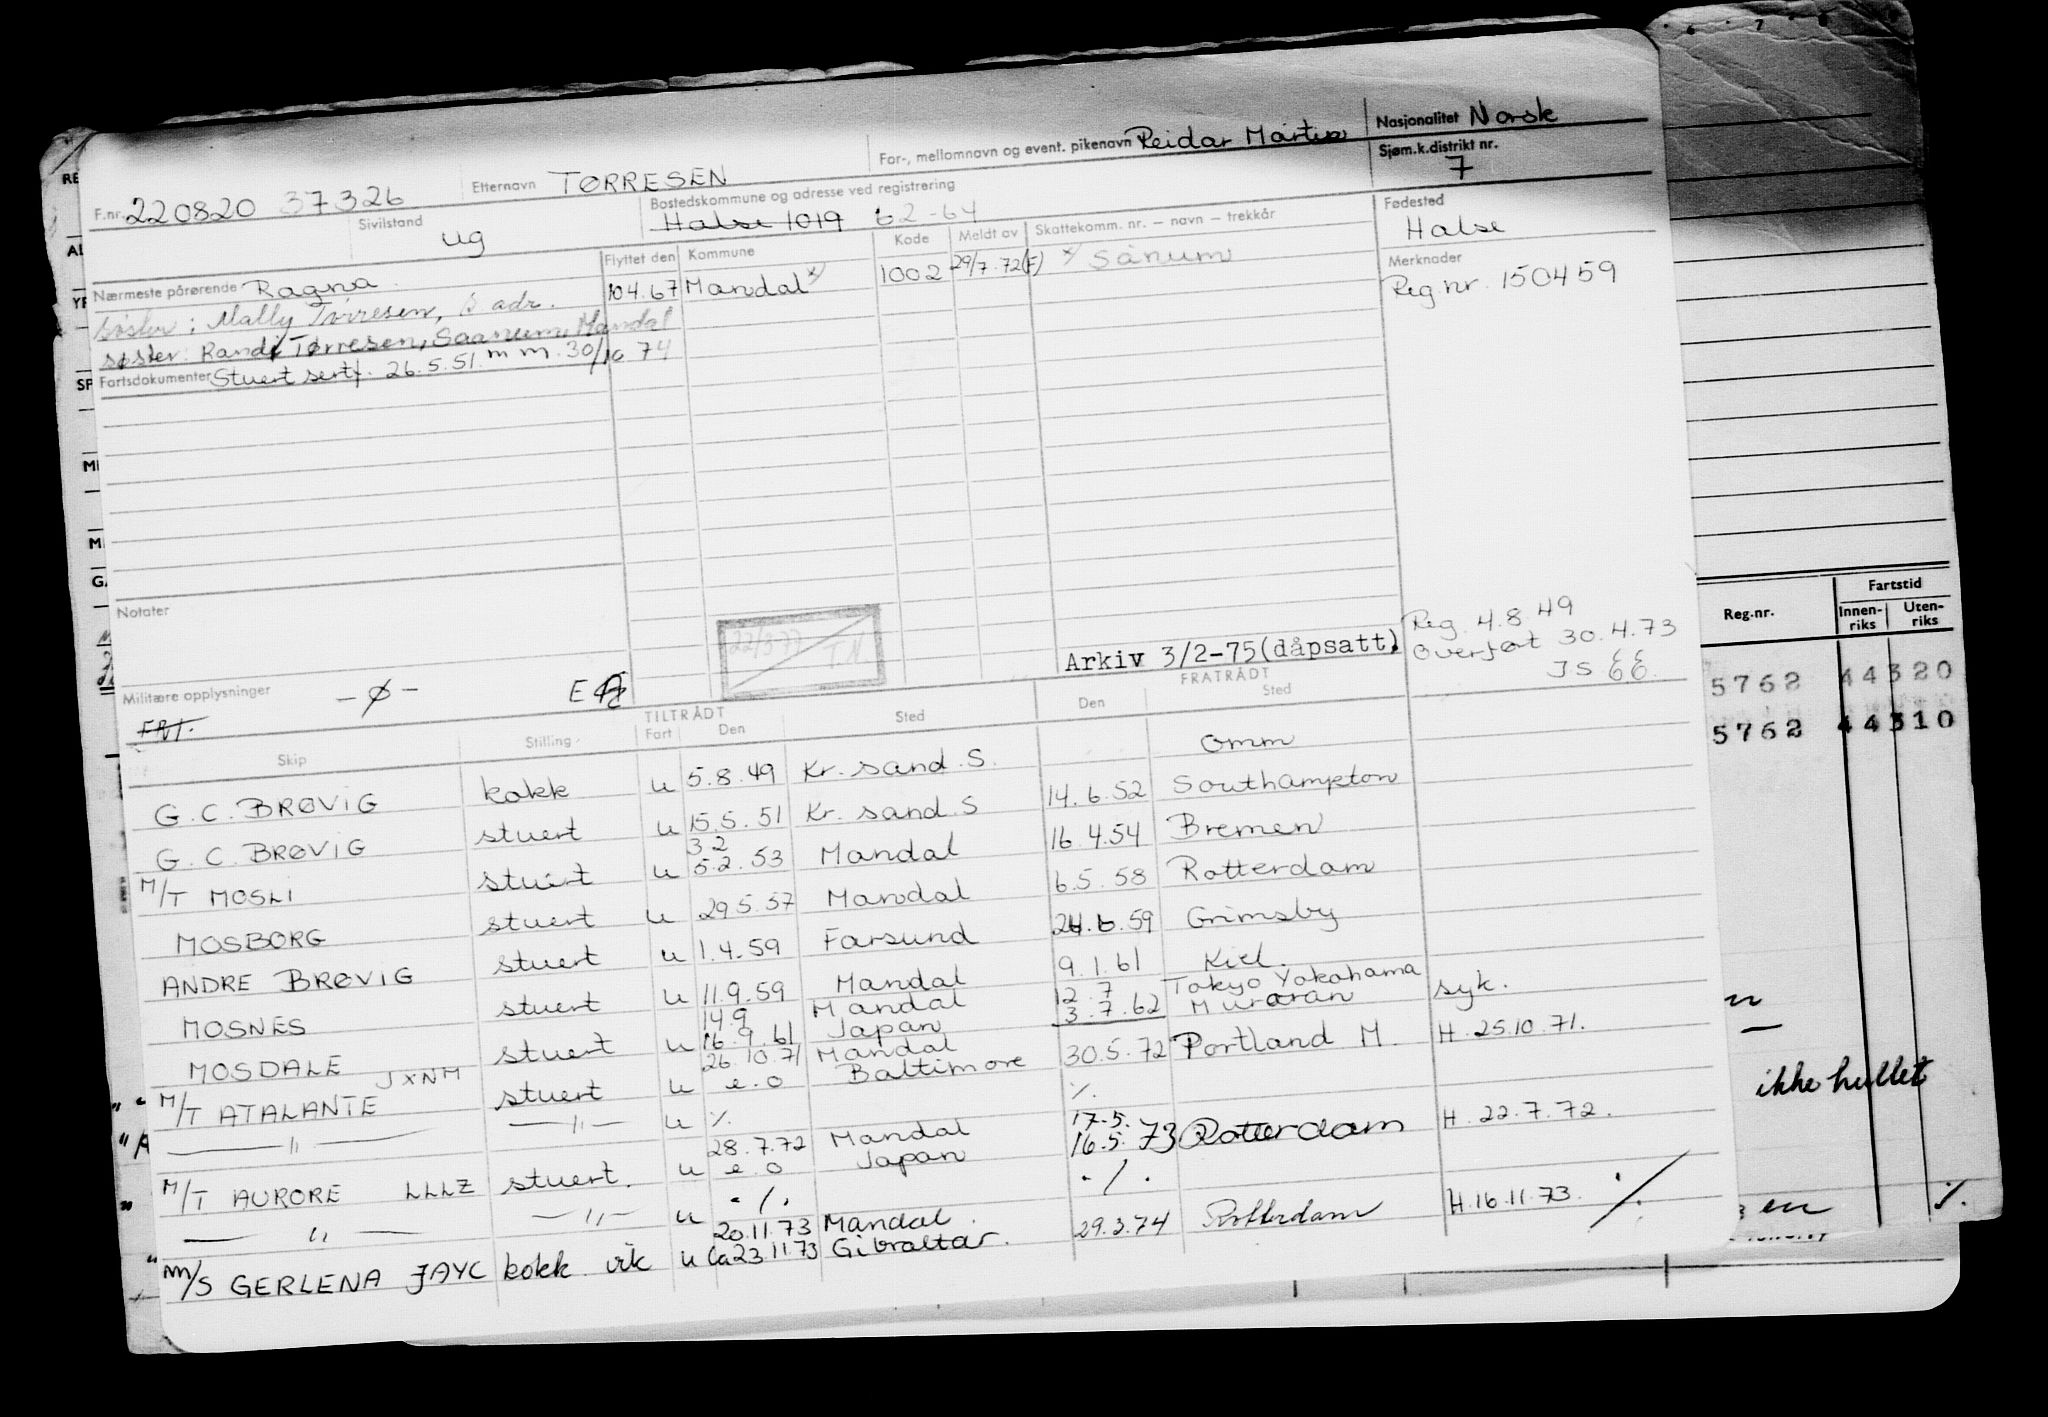 F.nr. 220820 37326
Etternavn TØRRESEN
For-, mellomnavn og event. pikenavn Reidar Martin
Nasjonalitet Norsk
Sjøm.k.distrikt nr. 7
Sivilstand ug
Bostedskommune og adresse ved registrering
Halse 1019 62-64
Fødested
Halse
Nærmeste pårørende Ragna
søster: Mally Tørresen, s. adr.
søster: Randi Tørresen, Saanum, Mandal
Flyttet den Kommune Kode Meldt av Skattekomm. nr. – navn – trekkår
10.4.67 Mandal x) 1002 29/7.72(F) x) Sånum
Merknader
Reg.nr. 150459
Fartsdokumenter Stuert sertf. 26.5.51. m m. 30/10 74
Notater
22/3 77 T.N.
Arkiv 3/2-75(dåpsatt)
Reg. 4.8.49
Overført 30.4.73
JS EE.
Militære opplysninger – Ø –
FRT.
TILTRÅDT FRATRÅDT
Skip Stilling Fart Den Sted Den Sted
G.C. BRØVIG kokk u 5.8.49 Kr.sand.S. Omm
G.C. BRØVIG stuert u 15.5.51 Kr.sand.S 14.6.52 Southampton
M/T MOSLI stuert u 3 2 5.2.53 Mandal 16.4.54 Bremen
MOSBORG stuert u 29.5.57 Mandal 6.5.58 Rotterdam
ANDRE BRØVIG stuert u 1.4.59 Farsund 24.6.59 Grimsby
MOSNES stuert u 11.9.59 Mandal 9.1.61 Kiel.
MOSDALE stuert u 14.9 16.9.61 Mandal Japan 12.7 3.7.62 Tokyo Yokohama Muroran syk.
M/T ATALANTE JXNM stuert u 26.10.71 e.o Mandal Baltimore 30.5.72 Portland M. H. 25.10.71.
— " — — " — u ./. ./.
M/T AURORE LLLZ stuert. u 28.7.72 e.o Mandal Japan 17.5. 16.5.73 Rotterdam H. 22.7.72.
— " — — " — u ./. ./.
M/S GERLENA JAYC kokk vik u 20.11.73 ca 23.11.73 Mandal Gibraltar. 29.3.74 Rotterdam H.16.11.73. ./.
Reg.nr. Fartstid
Innen-riks Uten-riks
5762 44320
5762 44310
ikke hullet
en ./.